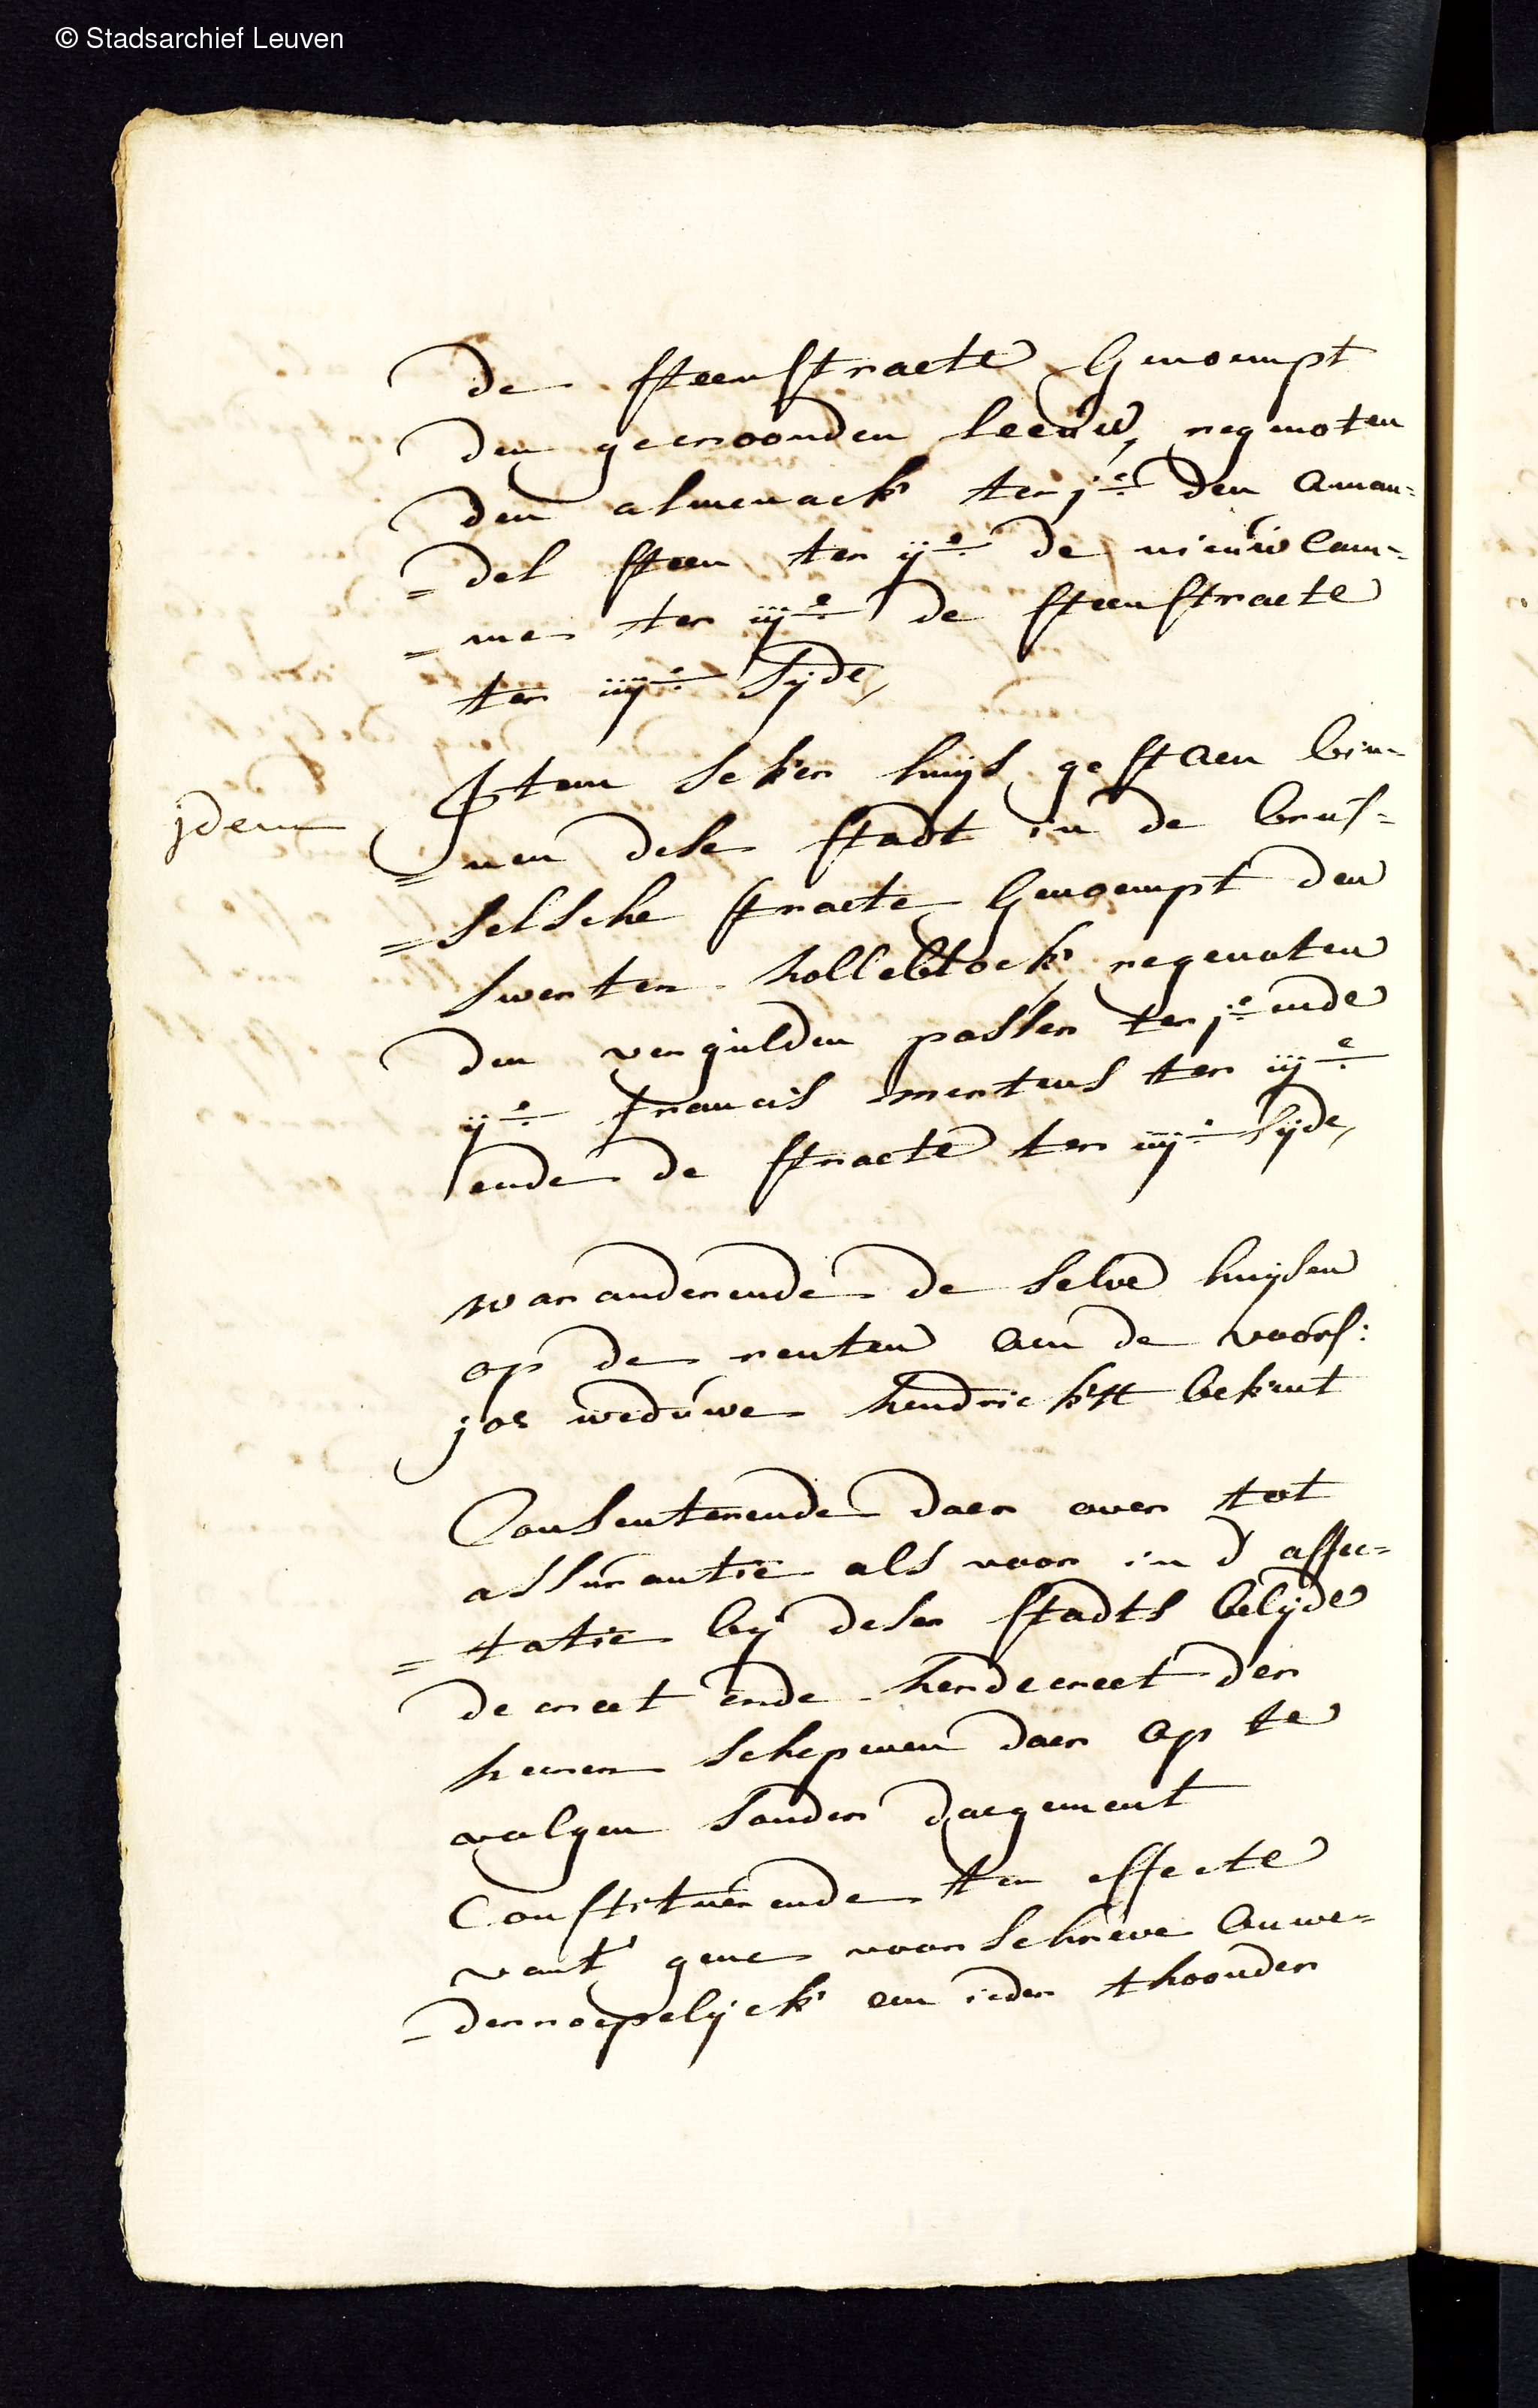 © Stadsarchief Leuven
de steenstraete Genoempt
den gecroonden leeuw, regenoten
den almenack ter j:e den Aman=
=del steen ter ij:e de nieuw cam=
=mer ter iij:e de steenstraete
ter iiij:e sijde,
jdem
Jtem seker huys gestaen bin=
=nen dese stadt in de brus=
=selsche straete Genoempt den
swerten holleblock, regenoten
den vergulden passer ter j:e ende
ij:e francis mertens ter iij:e
ende de straete ter iiij:e sijde,
waranderende de selve huysen
op de renten aen de voors:
joe weduwe hendrickx bekent
Consenterende daer over tot
assurantie als voor in d'affec=
=tatie by deser stadts belyde
decreet ende herdecreet der
heeren schepenen daer op te
volgen sonder daegement
Constituerende ten effecte
vant gene voorschreve onwe=
=derroepelyck een ieder thoonder